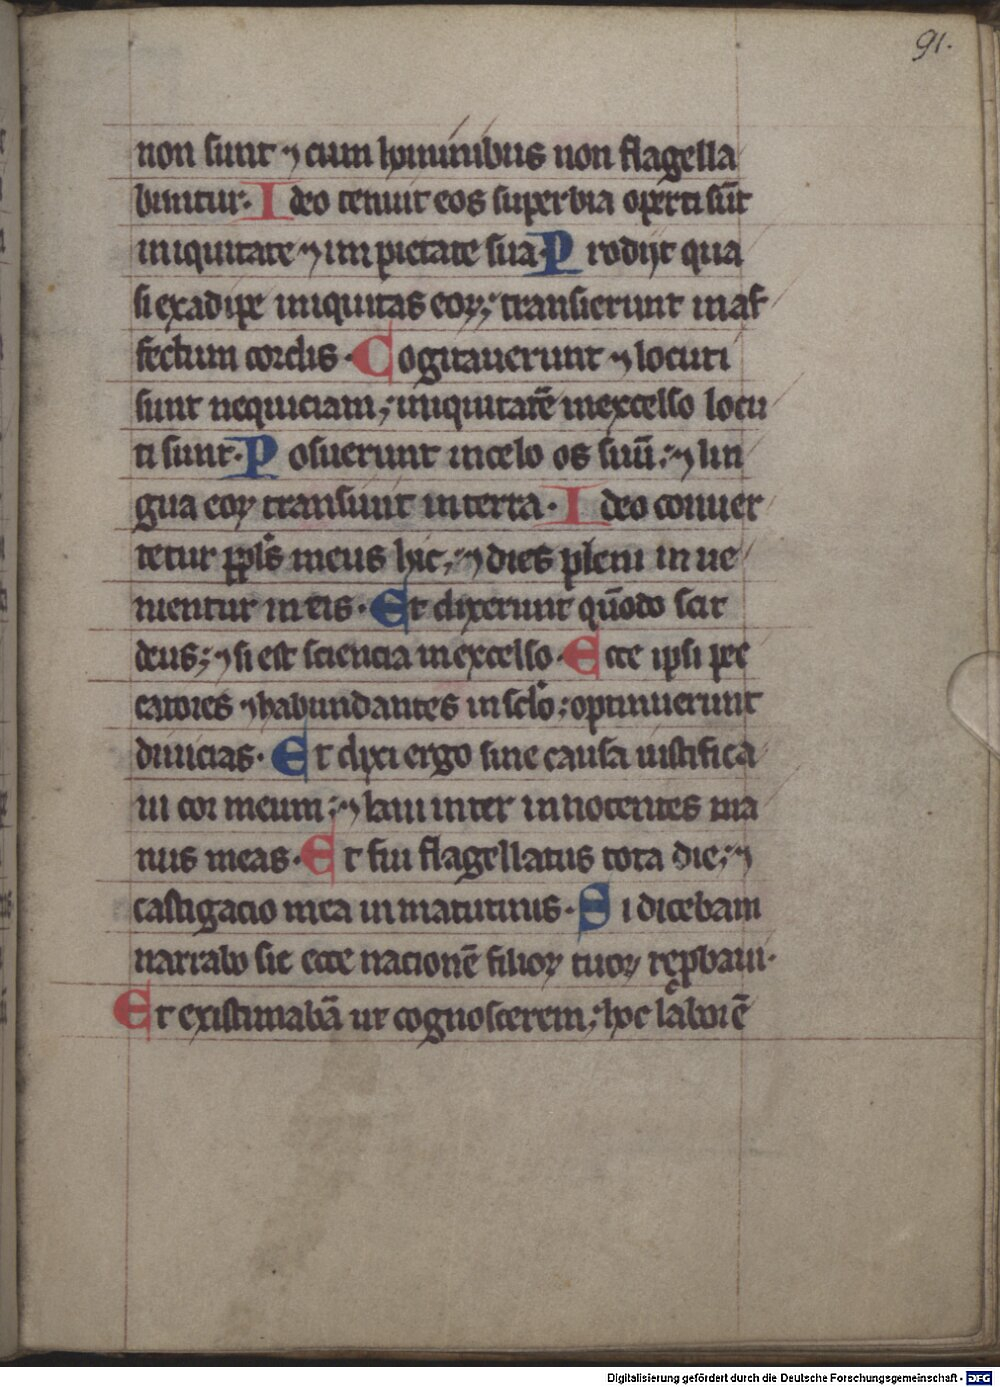 91.
non sunt ⁊ cum hominibus non flagella
buntur. Ideo tenuit eos superbia operti sūt
iniquitate ⁊ impietate sua. Prodijt qua
si ex adipe iniquitas eoꝝ; transierunt in af
fectum cordis. Cogitauerunt ⁊ locuti
sunt nequiciam; iniquitatē in excelso locu
ti sunt. Posuerunt in celo os suū; ⁊ lin
gua eoꝝ transiuit in terra. Ideo conuer
tetur ppl's meus hic; ⁊ dies pleni in ue
nientur in eis. Et dixerunt quōdo scit
deus; ⁊ si est sciencia in excelso. Ecce ipsi pec
catores ⁊ habundantes in sclo; optinuerunt
diuicias. Et dixi ergo sine causa iustifica
ui cor meum; ⁊ laui inter innocentes ma
nus meas. Et fui flagellatus tota die; ⁊
castigacio mea in matutinus. Si dicebam
narrabo sic ecce nacionē filioꝝ tuoꝝ reꝓbaui.
Et existimabā ut cognoscerem; hoc laborē
Digitalisierung gefördert durch die Deutsche Forschungsgemeinschaft - DFG